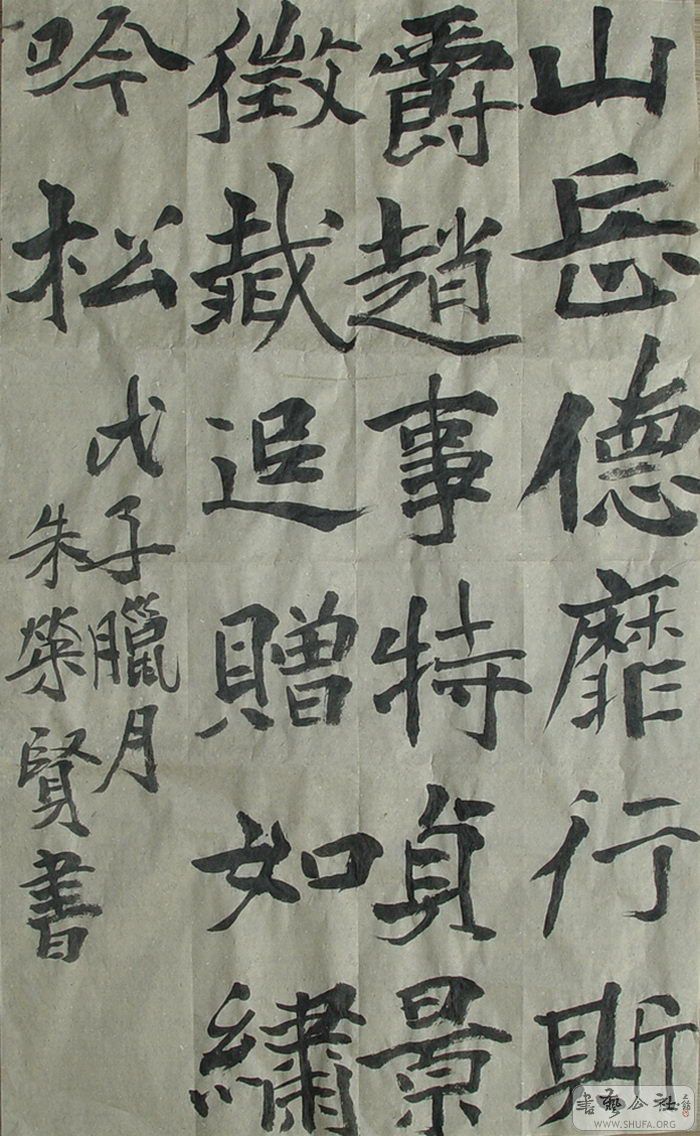 山岳德靡行斯
爵趙事特貞景
徵藏追贈如繡
吟松
戊子臘月
朱榮賢書
書藝公社
WWW.SHUFA.ORG